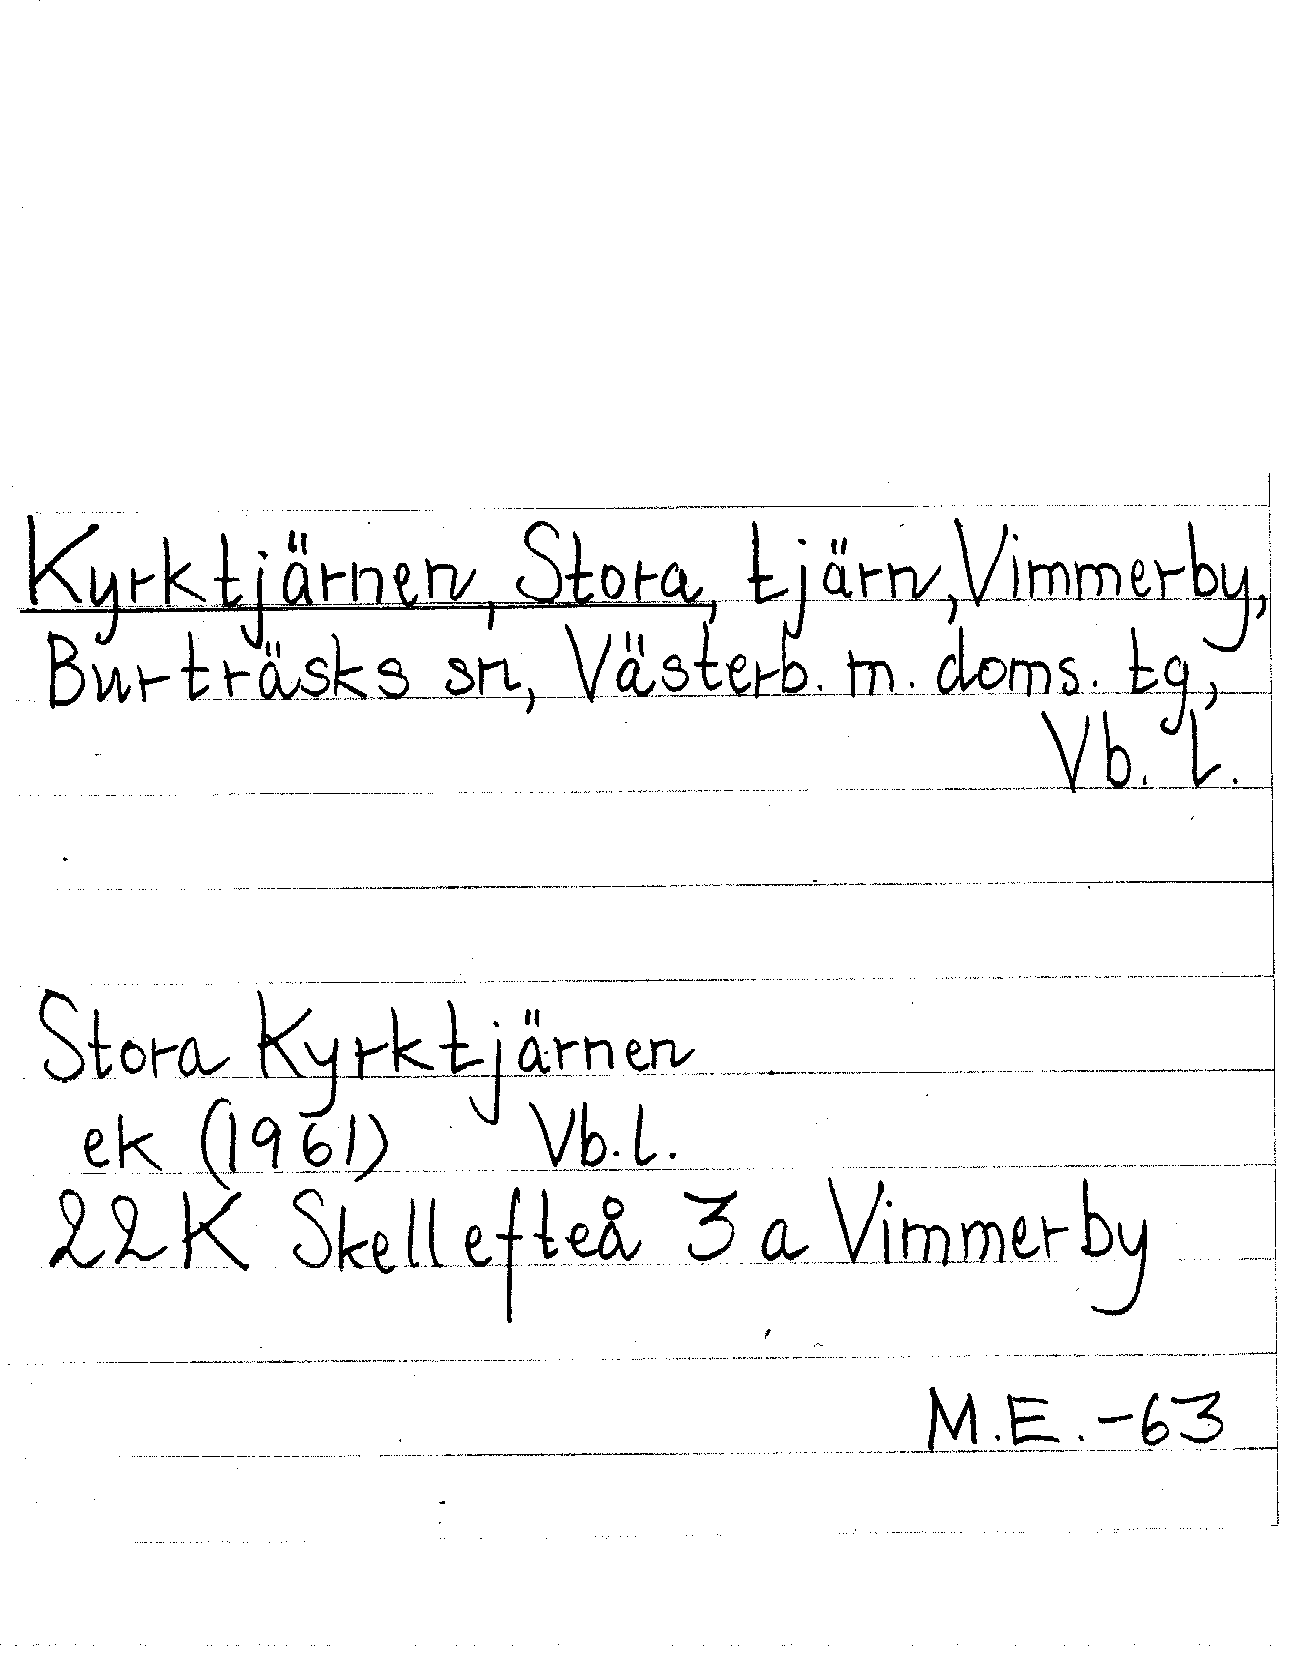 Kyrktjärnen, Stora, tjärn, Vimmerby,
Burträsks sn, Västerb. m. doms. tg,
Vb. l.
Stora Kyrktjärnen
ek (1961) Vb. l.
22K Skellefteå 3 a Vimmerby
M.E. -63